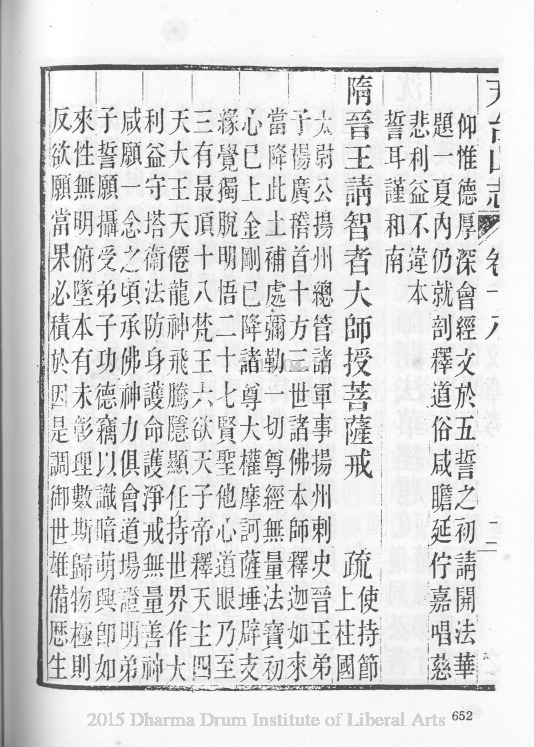 天台山志 卷十八 二
仰惟德厚深會經文於五誓之初請開法華
題一夏內仍就剖釋道俗咸瞻延佇嘉唱慈
悲利益不違本
誓耳謹和南
隋晉王請智者大師授菩薩戒疏使持節
上柱國
太尉公揚州總管諸軍事揚州刺史晉王弟
子楊廣稽首十方三世諸佛本師釋迦如來
當降此土補處彌勒一切尊經無量法寶初
心已上金剛已降諸尊大權摩訶薩埵辟支
緣覺獨脫明悟二十七賢聖他心道眼乃至
三有最頂十八梵王六欲天子帝釋天主四
天大王天僊龍神飛騰隱顯任持世界作大
利益守塔衞法防身護命護淨戒無量善神
咸願一念之頃承佛神力俱會道場證明弟
子誓願攝受弟子功德竊以識暗萌興卽如
來性無明俯墜本有未彰理數斯歸物極則
反欲願當果必積於因是調御世雄備歷生
2015 Dharma Drum Institute of Liberal Arts
652